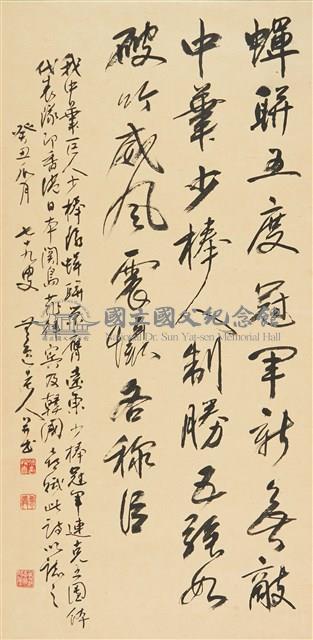 蟬聯五度冠軍新無敵
中華少棒人制勝五強如
破竹威風震稱臣
我中華巨人少棒隊蟬聯五屆遠東少棒冠軍連克五國
代表隊即香港日本關島菲律賓及韓國喜賦此詩以誌之
癸丑八月 七十九叟 老人并書
國立國父紀念館
National Dr. Sun Yat-sen Memorial Hall